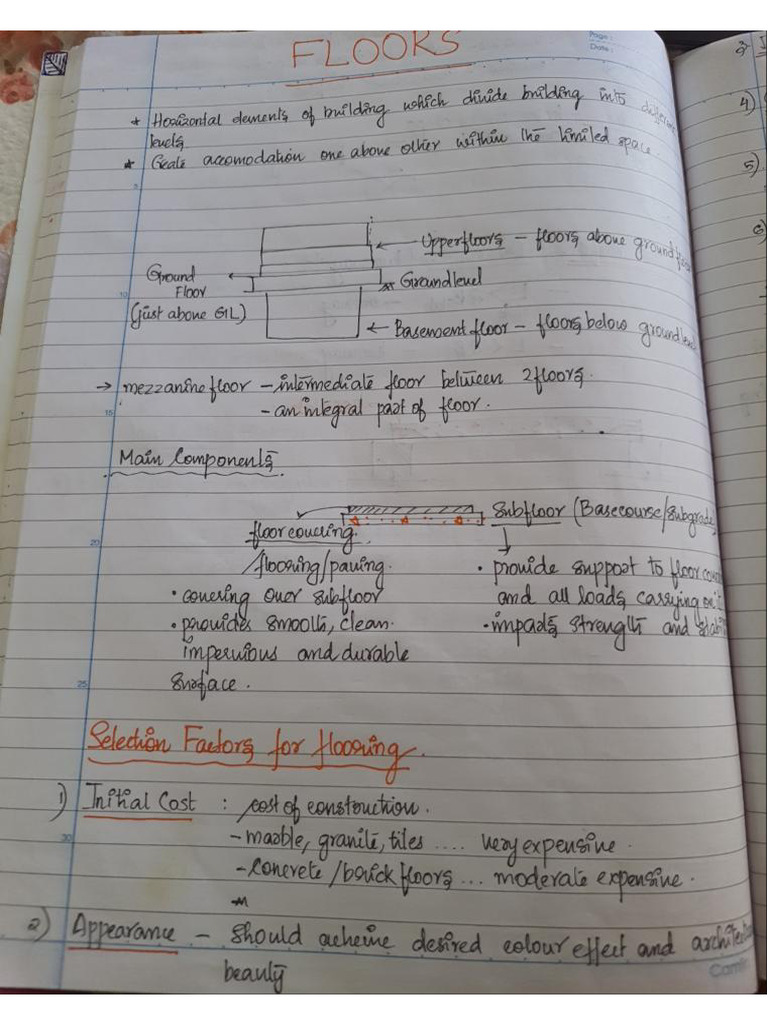 Page:
Date:
FLOORS
* Horizontal elements of building which divide building into different
levels
* Create accomodation one above other within the limited space.
Upperfloors - floors above ground
Ground Floor (just above G.L)
Ground level
Basement floor - floors below ground level
→ mezzanine floor - intermediate floor between 2 floors.
- an integral part of floor.
Main Components
subfloor (Basecourse/subgrade
floor covering
/flooring/paving.
• covering over subfloor
• provides smooth, clean
impervious and durable
surface.
• provide support to floor
and all loads carrying on
• impacts strength and
Selection Factors for flooring.
1) Initial Cost : cost of construction.
- marble, granite, tiles .... very expensive.
- Concrete/brick floors ... moderate expensive.
2) Appearance - Should acheive desired colour effect and
beauty
2)
4)
5)
6)
5
10
15
20
25
30